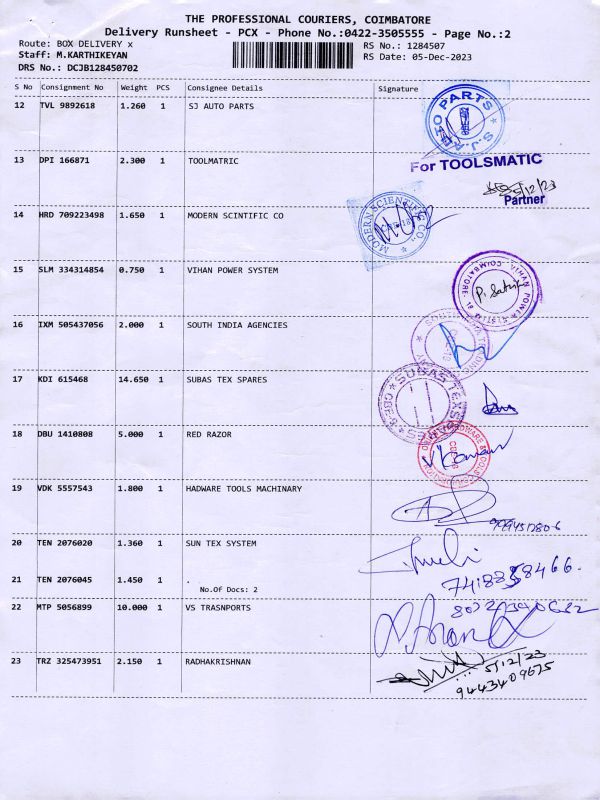 THE PROFESSIONAL COURIERS, COIMBATORE
Delivery Runsheet - PCX - Phone No.:0422-3505555 - Page No.:2
Route: BOX DELIVERY x
RS No.: 1284507
Staff: M.KARTHIKEYAN
RS Date: 05-Dec-2023
DRS No.: DCJB128450702
S No Consignment No Weight PCS Consignee Details Signature
12 TVL 9892618 1.260 1 SJ AUTO PARTS
S.J. AUTO PARTS
13 DPI 166871 2.300 1 TOOLMATRIC
For TOOLSMATIC
5/12/23
Partner
14 HRD 709223498 1.650 1 MODERN SCINTIFIC CO
MODERN SCIENTIFIC CO.,
15 SLM 334314854 0.750 1 VIHAN POWER SYSTEM
VIHAN POWER SYSTEM
COIMBATORE
P. Satish
16 IXM 505437056 2.000 1 SOUTH INDIA AGENCIES
17 KDI 615468 14.650 1 SUBAS TEX SPARES
SUBAS TEX
18 DBU 1410808 5.000 1 RED RAZOR
19 VDK 5557543 1.800 1 HADWARE TOOLS MACHINARY
20 TEN 2076020 1.360 1 SUN TEX SYSTEM
7418858466.
21 TEN 2076045 1.450 1 .
No.Of Docs: 2
22 MTP 5056899 10.000 1 VS TRASNPORTS
23 TRZ 325473951 2.150 1 RADHAKRISHNAN
5/12/23
9443409675